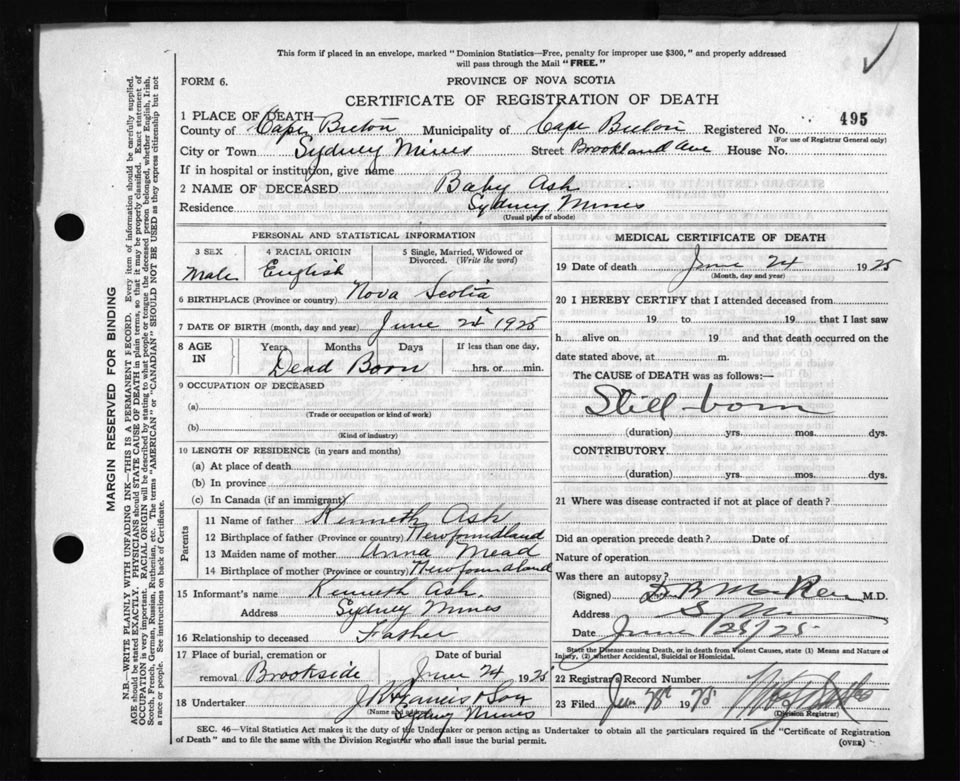 This form if placed in an envelope, marked "Dominion Statistics—Free, penalty for improper use $300," and properly addressed
will pass through the Mail "FREE."
FORM 6.
PROVINCE OF NOVA SCOTIA
CERTIFICATE OF REGISTRATION OF DEATH
1 PLACE OF DEATH—
County of Cape Breton Municipality of Cape Breton Registered No. 495
(For use of Registrar General only)
City or Town Sydney Mines Street Brookland Ave House No.
If in hospital or institution, give name
2 NAME OF DECEASED Baby Ash
Residence Sydney Mines
(Usual place of abode)
PERSONAL AND STATISTICAL INFORMATION
3 SEX 4 RACIAL ORIGIN 5 Single, Married, Widowed or
Divorced. (Write the word)
Male English
6 BIRTHPLACE (Province or country) Nova Scotia
7 DATE OF BIRTH (month, day and year) June 24 1925
8 AGE IN Years Months Days If less than one day,
Dead Born hrs. or min.
9 OCCUPATION OF DECEASED
(a)
(Trade or occupation or kind of work)
(b)
(Kind of industry)
10 LENGTH OF RESIDENCE (in years and months)
(a) At place of death
(b) In province
(c) In Canada (if an immigrant)
Parents
11 Name of father Kenneth Ash
12 Birthplace of father (Province or country) Newfoundland
13 Maiden name of mother Anna Mead
14 Birthplace of mother (Province or country) Newfoundland
15 Informant's name Kenneth Ash.
Address Sydney Mines
16 Relationship to deceased Father
17 Place of burial, cremation or Date of burial
removal Brookside June 24 1925
18 Undertaker J R Francis & Son
(Name and address)
Sydney Mines
MEDICAL CERTIFICATE OF DEATH
19 Date of death June 24 1925
(Month, day and year)
20 I HEREBY CERTIFY that I attended deceased from
19 to 19 that I last saw
h alive on 19 and that death occurred on the
date stated above, at m.
The CAUSE of DEATH was as follows:—
Still-born
(duration) yrs. mos. dys.
CONTRIBUTORY
(duration) yrs. mos. dys.
21 Where was disease contracted if not at place of death?
Did an operation precede death? Date of
Nature of operation
Was there an autopsy?
(Signed) M.D.
Address
Date June 25/25
State the Disease causing Death, or in death from Violent Causes, state (1) Means and Nature of
Injury, (2) whether Accidental, Suicidal or Homicidal.
22 Registrar's Record Number
23 Filed 19
(Division Registrar)
SEC. 46—Vital Statistics Act makes it the duty of the Undertaker or person acting as Undertaker to obtain all the particulars required in the "Certificate of Registration
of Death" and to file the same with the Division Registrar who shall issue the burial permit.
(OVER)
MARGIN RESERVED FOR BINDING
N.B.—WRITE PLAINLY WITH UNFADING INK—THIS IS A PERMANENT RECORD. Every item of information should be carefully supplied.
AGE should be stated EXACTLY. PHYSICIANS should STATE CAUSE OF DEATH in plain terms, so that it may be properly classified. Exact statement of
OCCUPATION is very important. RACIAL ORIGIN will be described by stating to what people or tongue the deceased person belonged, whether English, Irish,
Scotch, French, German, Russian, Ruthenian, etc. The terms "AMERICAN" or "CANADIAN" SHOULD NOT BE USED as they express citizenship but not
a race or people. See instructions on back of Certificate.